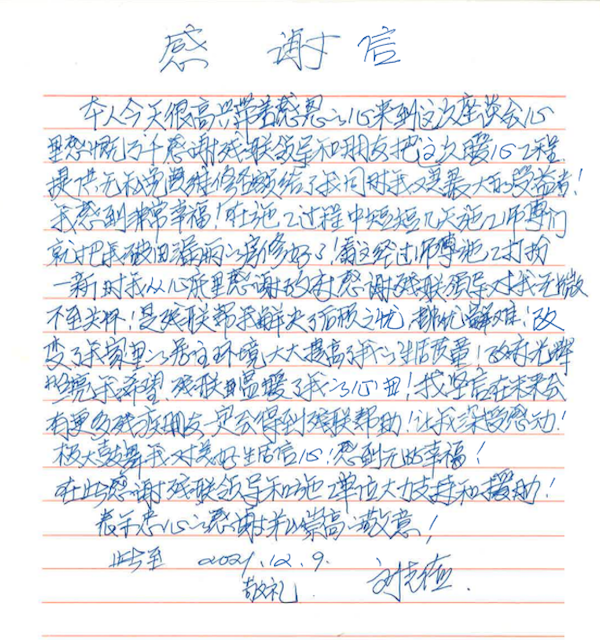 感谢信
本人今天很高兴带着感恩之心来到这次座谈会心
里感慨万千感谢残联领导和朋友把这次暖心工程
提供无私免费维修名额给了我同时我又是最大的受益者!
我感到非常幸福!在施工过程中短短几天施工师傅们
就把我破旧漏雨的房修好了!当经过师傅施工打扮
一新时我从心底里感谢政府感谢残联领导对我无微
不至关怀!是残联帮我解决了后顾之忧,排忧解难!改
变了我家里的居住环境大大提高了我的生活质量!政府光辉
照亮我希望.残联温暖了我的心田!我坚信在未来会
有更多残疾朋友一定会得到残联帮助!让我深受感动!
极大鼓舞我对美好生活信心!感到无比幸福!
在此感谢残联领导和施工单位大力支持和援助!
表示忠心的感谢并以崇高的敬意!
此至 2021.12.9.
敬礼.